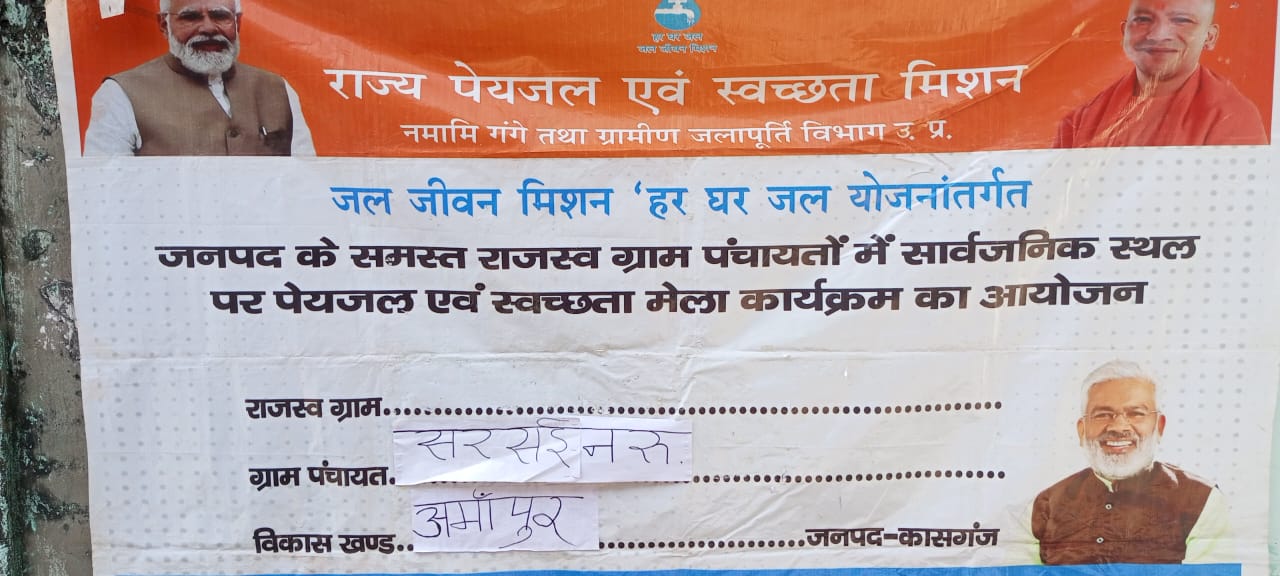 हर घर जल
जल जीवन मिशन
राज्य पेयजल एवं स्वच्छता मिशन
नमामि गंगे तथा ग्रामीण जलापूर्ति विभाग उ. प्र.
जल जीवन मिशन 'हर घर जल योजनांतर्गत
जनपद के समस्त राजस्व ग्राम पंचायतों में सार्वजनिक स्थल
पर पेयजल एवं स्वच्छता मेला कार्यक्रम का आयोजन
राजस्व ग्राम
ग्राम पंचायत. सरसईनरू.
विकास खण्ड.. अमाँपुर जनपद-कासगंज